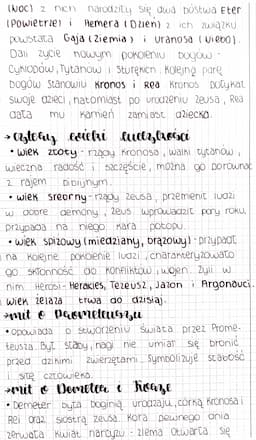 (Noc) z nich narodziły się dwa bóstwa Eter
(Powietrze) i Hemera (Dzień) z ich związku
powstała Gaja (Ziemia) i Uranosa (Niebo).
Dali życie nowym pokoleniu bogów -
Cyklopów, Tytanów i Sturękich. Kolejną parę
bogów stanowili Kronos i Rea. Kronos połykał
swoje dzieci, natomiast po urodzeniu Zeusa, Rea
dała mu kamień zamiast dziecka.
→ cztery wieki ludzkości
• wiek złoty - rządy Kronosa, walki tytanów,
wieczna radość i szczęście, można go porównać
z rajem biblijnym.
• wiek srebrny - rządy Zeusa, przemienił ludzi
w dobre demony, Zeus wprowadził pory roku,
przypada na niego kara potopu.
• wiek spiżowy (miedziany, brązowy) - przypadł
na kolejne pokolenie ludzi, charakteryzowało
go skłonność do konfliktów i wojen. Żyli w
nim Herosi - Herakles, Tezeusz, Jazon i Argonauci.
wiek żelaza trwa do dzisiaj.
→ mit o Prometeuszu
• opowiada o stworzeniu świata przez Prome-
teusza. Był słaby, nagi nie umiał się bronić
przed dzikimi zwierzętami. Symbolizuje słabość
i siłę człowieka.
→ mit o Demeter i Korze
• Demeter była boginią urodzaju, córką Kronosa i
Rei oraz siostrą Zeusa. Kora pewnego dnia
zerwała kwiat narcyzu - ziemia otwarła się